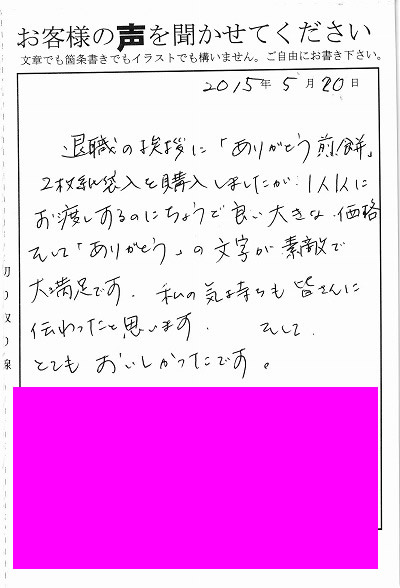 お客様の声を聞かせてください
文章でも箇条書きでもイラストでも構いません。ご自由にお書き下さい。
2015年5月20日
退職の挨拶に「ありがとう煎餅」
2枚紙袋入を購入しましたが、1人1人に
お渡しするのにちょうど良い大きな、価格
そして「ありがとう」の文字が素敵で
大満足です。私の気持ちも皆さんに
伝わったと思います。そして、
とてもおいしかったです。
切り取り線